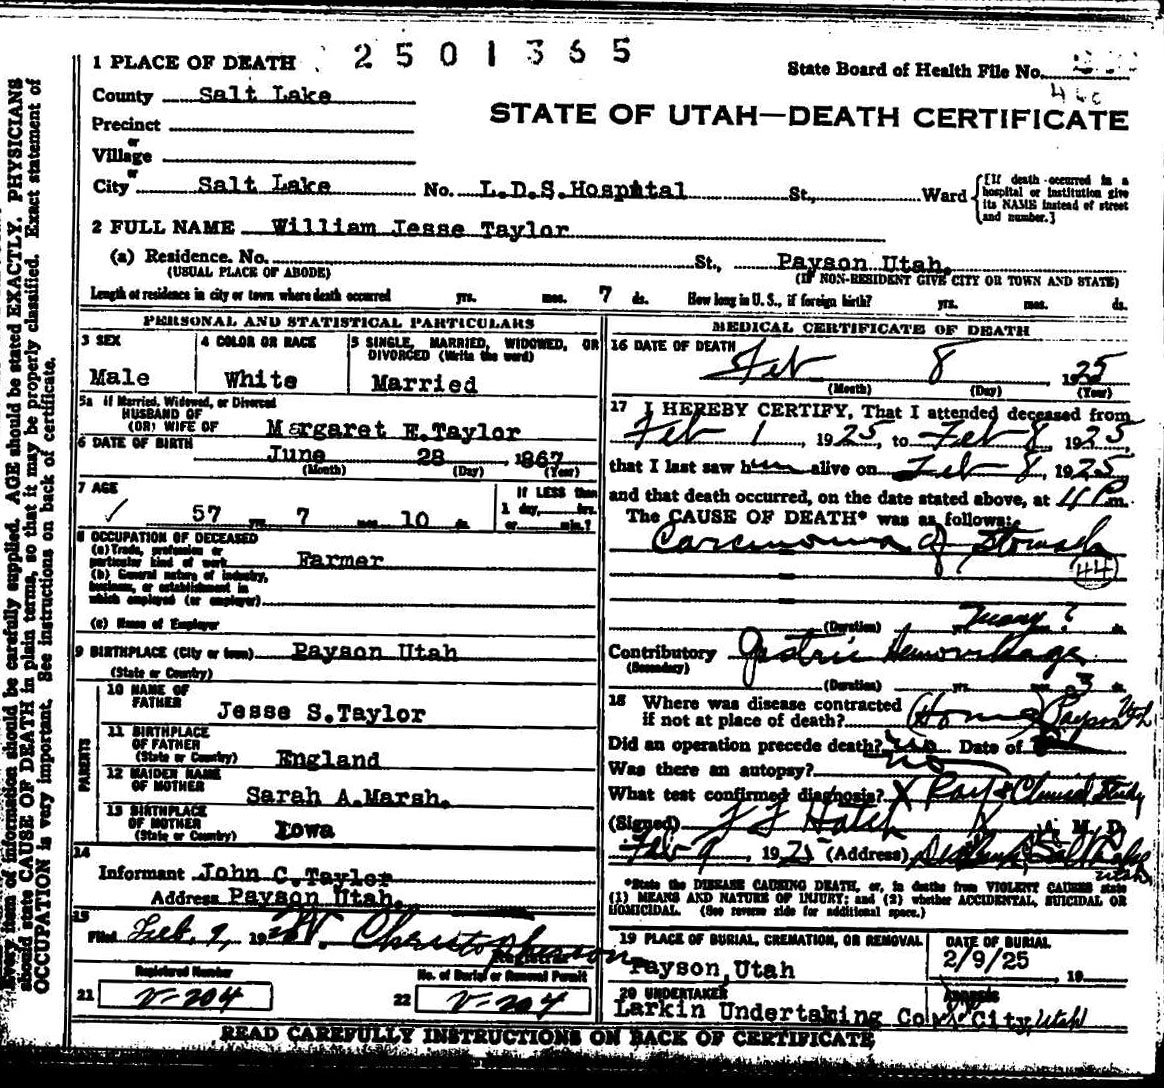 1 PLACE OF DEATH 2501365
State Board of Health File No.
County Salt Lake
STATE OF UTAH—DEATH CERTIFICATE
Precinct
or
Village
or
City Salt Lake No. L.D.S.Hospital St., Ward
[If death occurred in a
hospital or institution give
its NAME instead of street
and number.]
2 FULL NAME William Jesse Taylor
(a) Residence. No. St., Payson Utah.
(USUAL PLACE OF ABODE) (IF NON-RESIDENT GIVE CITY OR TOWN AND STATE)
Length of residence in city or town where death occurred yrs. mos. 7 ds. How long in U. S., if foreign birth? yrs. mos. ds.
PERSONAL AND STATISTICAL PARTICULARS
3 SEX 4 COLOR OR RACE 5 SINGLE, MARRIED, WIDOWED, OR
DIVORCED (Write the word)
Male White Married
5a If Married, Widowed, or Divorced
HUSBAND OF
(OR) WIFE OF Margaret E.Taylor
6 DATE OF BIRTH June 28 1867
(Month) (Day) (Year)
7 AGE If LESS than
1 day, hrs.
57 yrs. 7 mos. 10 ds. or min.?
8 OCCUPATION OF DECEASED
(a) Trade, profession or
particular kind of work Farmer
(b) General nature of industry,
business, or establishment in
which employed (or employer)
(c) Name of Employer
9 BIRTHPLACE (City or town) Payson Utah
(State or Country)
PARENTS
10 NAME OF
FATHER Jesse S.Taylor
11 BIRTHPLACE
OF FATHER
(State or Country) England
12 MAIDEN NAME
OF MOTHER Sarah A.Marsh.
13 BIRTHPLACE
OF MOTHER
(State or Country) Iowa
14
Informant John C.Taylor
Address Payson Utah.
15
Filed Feb. 9, 192
Registrar
Registered Number No. of Burial or Removal Permit
21 V-204 22 V-204
MEDICAL CERTIFICATE OF DEATH
16 DATE OF DEATH
Feb 8 1925
(Month) (Day) (Year)
17 I HEREBY CERTIFY, That I attended deceased from
Feb 1, 1925, to Feb 8, 1925
that I last saw him alive on Feb 8, 1925
and that death occurred, on the date stated above, at 4 P m.
The CAUSE OF DEATH* was as follows:
Carcinoma of Stomach
44
(Duration) yrs. ds.
Contributory Gastric Hemorrhage
(Secondary)
(Duration) yrs. mos. 3 ds.
18 Where was disease contracted
if not at place of death? (Home) Payson Utah
Did an operation precede death? no Date of
Was there an autopsy? no
What test confirmed diagnosis? X Ray & Clinical Study
(Signed) M. D.
Feb 9, 1925 (Address) Salt Lake
Utah
*State the DISEASE CAUSING DEATH, or, in deaths from VIOLENT CAUSES state
(1) MEANS AND NATURE OF INJURY; and (2) whether ACCIDENTAL, SUICIDAL OR
HOMICIDAL. (See reverse side for additional space.)
19 PLACE OF BURIAL, CREMATION, OR REMOVAL DATE OF BURIAL
Payson,Utah 2/9/25 19
20 UNDERTAKER ADDRESS
Larkin Undertaking Co City, Utah
READ CAREFULLY INSTRUCTIONS ON BACK OF CERTIFICATE
Every item of information should be carefully supplied. AGE should be stated EXACTLY. PHYSICIANS
should state CAUSE OF DEATH in plain terms, so that it may be properly classified. Exact statement of
OCCUPATION is very important. See instructions on back of certificate.